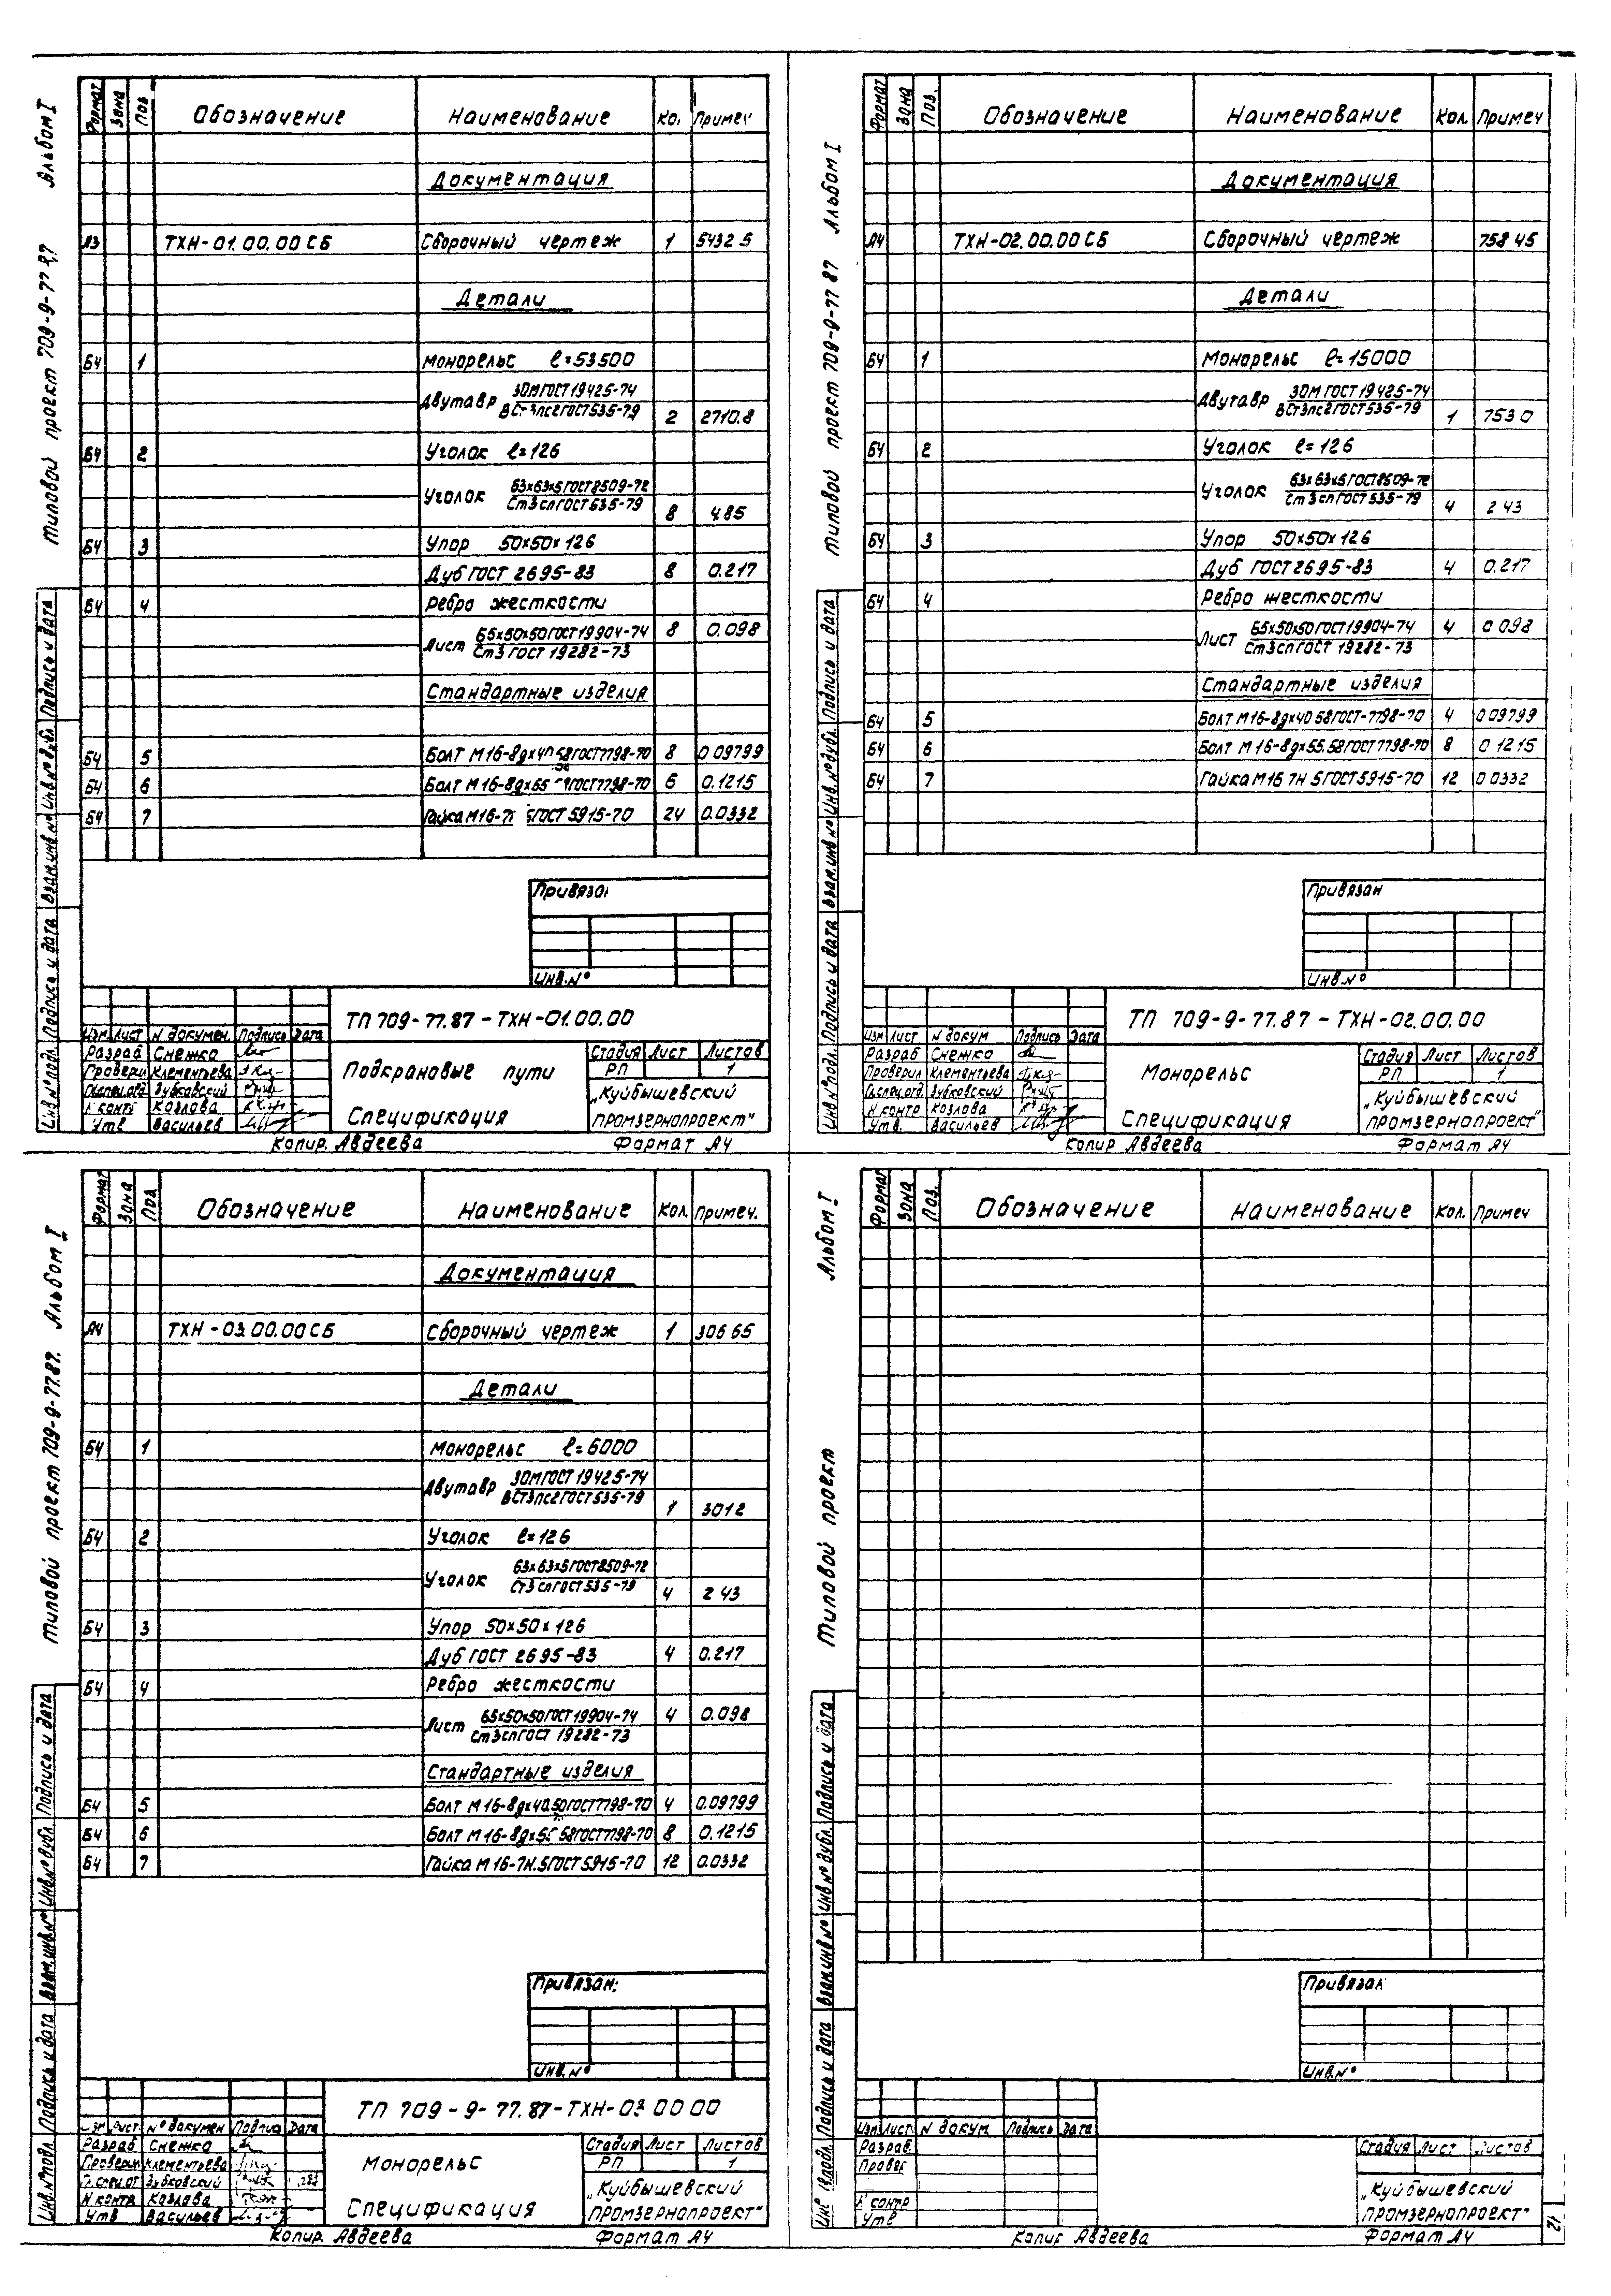 Альбом I
Типовой проект 709-9-77.87
Формат Зона Поз Обозначение Наименование Кол. Примеч
Документация
А3 ТХН-01.00.00 СБ Сборочный чертеж 1 5432 5
Детали
БЧ 1 Монорельс ℓ=53500
Двутавр 30М ГОСТ 19425-74
ВСт3пс2 ГОСТ 535-79 2 2710.8
БЧ 2 Уголок ℓ=126
Уголок 63х63х5 ГОСТ 8509-72
Ст3сп ГОСТ 535-79 8 4.85
БЧ 3 Упор 50х50х126
Дуб ГОСТ 2695-83 8 0.217
БЧ 4 Ребро жесткости
Лист 65х50х50 ГОСТ 19904-74 8 0.098
Ст3 ГОСТ 19282-73
Стандартные изделия
БЧ 5 Болт М16-8gх40.58 ГОСТ 7798-70 8 0 09799
БЧ 6 Болт М16-8gх55 ГОСТ 7798-70 6 0.1215
БЧ 7 Гайка М16-7 5 ГОСТ 5915-70 24 0.0332
Привязан
Инв.№
ТП 709-77.87-ТХН-01.00.00
Изм Лист N докумен. Подпись Дата
Разраб Снежко
Проверил Клементьева
Гл.спец.отд Зубковский
Н контр Козлова
Утв Васильев
Подкрановые пути
Спецификация
Стадия Лист Листов
РП 1
„Куйбышевский
Промзернопроект"
Копир. Авдеева Формат А4
Инв № подл. Подпись и дата Взам.инв № Инв № дубл. Подпись и дата
Альбом I
Типовой проект 709-9-77 87
Формат Зона Поз. Обозначение Наименование Кол. Примеч
Документация
А4 ТХН-02.00.00 СБ Сборочный чертеж 758 45
Детали
БЧ 1 Монорельс ℓ=15000
Двутавр 30М ГОСТ 19425-74
ВСт3пс2 ГОСТ 535-79 1 753 0
БЧ 2 Уголок ℓ=126
Уголок 63х63х5 ГОСТ 8509-72
Ст3сп ГОСТ 535-79 4 2 43
БЧ 3 Упор 50х50х126
Дуб ГОСТ 2695-83 4 0.217
БЧ 4 Ребро жесткости
Лист 65х50х50 ГОСТ 19904-74 4 0 098
Ст3сп ГОСТ 19282-73
Стандартные изделия
БЧ 5 Болт М16-8gх40 58 ГОСТ-7798-70 4 0 09799
БЧ 6 Болт М16-8gх55.58 ГОСТ 7798-70 8 0 1215
БЧ 7 Гайка М16 7Н 5 ГОСТ 5915-70 12 0 0332
Привязан
Инв.№
ТП 709-9-77.87-ТХН-02.00.00
Изм Лист N докум Подпись Дата
Разраб Снежко
Проверил Клементьева
Гл.спец.отд. Зубковский
Н контр Козлова
Утв. Васильев
Монорельс
Спецификация
Стадия Лист Листов
РП 1
„Куйбышевский
Промзернопроект"
Копир Авдеева Формат А4
Инв № подл. Подпись и дата Взам.инв № Инв. № дубл. Подпись и дата
Альбом I
Типовой проект 709-9-77.87.
Формат Зона Поз. Обозначение Наименование Кол. Примеч.
Документация
А4 ТХН-03.00.00 СБ Сборочный чертеж 1 306 65
Детали
БЧ 1 Монорельс ℓ=6000
Двутавр 30М ГОСТ 19425-74
ВСт3пс2 ГОСТ 535-79 1 301 2
БЧ 2 Уголок ℓ=126
Уголок 63х63х5 ГОСТ 8509-72
Ст3сп ГОСТ 535-79 4 2 43
БЧ 3 Упор 50х50х126
Дуб ГОСТ 2695-83 4 0.217
БЧ 4 Ребро жесткости
Лист 65х50х50 ГОСТ 19904-74 4 0.098
Ст3сп ГОСТ 19282-73
Стандартные изделия
БЧ 5 Болт М16-8gх40.50 ГОСТ 7798-70 4 0.09799
БЧ 6 Болт М16-8gх55 58 ГОСТ 7798-70 8 0.1215
БЧ 7 Гайка М16-7Н.5 ГОСТ 5915-70 12 0.0332
Привязан:
Инв.№
ТП 709-9-77.87-ТХН-03 00 00
Изм Лист № докумен Подпись Дата
Разраб Снежко
Проверил Клементьева
Гл.спец.от Зубковский
Н контр Козлова
Утв Васильев
Монорельс
Спецификация
Стадия Лист Листов
РП 1
„Куйбышевский
Промзернопроект"
Копир. Авдеева Формат А4
Инв. № подл. Подпись и дата Взам.инв № Инв.№ дубл Подпись и дата
Альбом I
Типовой проект
Формат Зона Поз. Обозначение Наименование Кол. Примеч
Привязан
Инв.№
Изм. Лист. N докум. Подпись Дата
Разраб.
Провер
Н контр
Утв
Стадия Лист Листов
„Куйбышевский
Промзернопроект"
Копир Авдеева Формат А4
Подпись и дата Взам.инв № Инв № дубл. Подпись и дата